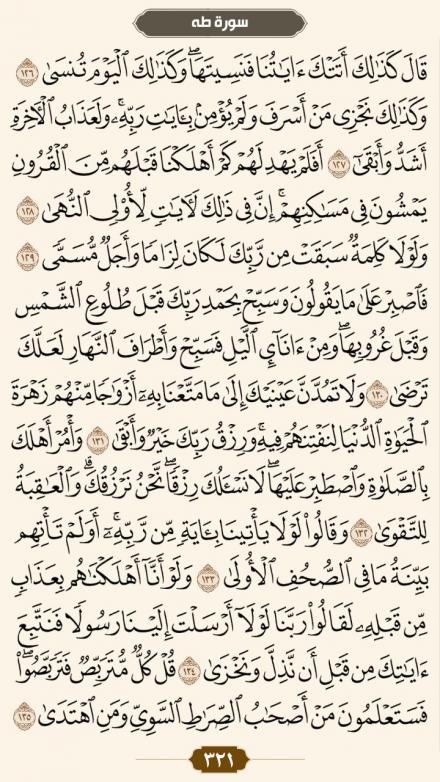 سورة طه
قَالَ كَذَٰلِكَ أَتَتْكَ ءَايَـٰتُنَا فَنَسِيتَهَا ۖ وَكَذَٰلِكَ ٱلْيَوْمَ تُنسَىٰ ١٢٦
وَكَذَٰلِكَ نَجْزِى مَنْ أَسْرَفَ وَلَمْ يُؤْمِنۢ بِـَٔايَـٰتِ رَبِّهِۦ ۚ وَلَعَذَابُ ٱلْـَٔاخِرَةِ
أَشَدُّ وَأَبْقَىٰٓ ١٢٧ أَفَلَمْ يَهْدِ لَهُمْ كَمْ أَهْلَكْنَا قَبْلَهُم مِّنَ ٱلْقُرُونِ
يَمْشُونَ فِى مَسَـٰكِنِهِمْ ۗ إِنَّ فِى ذَٰلِكَ لَـَٔايَـٰتٍ لِّأُو۟لِى ٱلنُّهَىٰ ١٢٨
وَلَوْلَا كَلِمَةٌ سَبَقَتْ مِن رَّبِّكَ لَكَانَ لِزَامًا وَأَجَلٌ مُّسَمًّى ١٢٩
فَٱصْبِرْ عَلَىٰ مَا يَقُولُونَ وَسَبِّحْ بِحَمْدِ رَبِّكَ قَبْلَ طُلُوعِ ٱلشَّمْسِ
وَقَبْلَ غُرُوبِهَا ۖ وَمِنْ ءَانَآئِ ٱلَّيْلِ فَسَبِّحْ وَأَطْرَافَ ٱلنَّهَارِ لَعَلَّكَ
تَرْضَىٰ ١٣٠ وَلَا تَمُدَّنَّ عَيْنَيْكَ إِلَىٰ مَا مَتَّعْنَا بِهِۦٓ أَزْوَٰجًا مِّنْهُمْ زَهْرَةَ
ٱلْحَيَوٰةِ ٱلدُّنْيَا لِنَفْتِنَهُمْ فِيهِ ۚ وَرِزْقُ رَبِّكَ خَيْرٌ وَأَبْقَىٰ ١٣١ وَأْمُرْ أَهْلَكَ
بِٱلصَّلَوٰةِ وَٱصْطَبِرْ عَلَيْهَا ۖ لَا نَسْـَٔلُكَ رِزْقًا ۖ نَّحْنُ نَرْزُقُكَ ۗ وَٱلْعَـٰقِبَةُ
لِلتَّقْوَىٰ ١٣٢ وَقَالُوا۟ لَوْلَا يَأْتِينَا بِـَٔايَةٍ مِّن رَّبِّهِۦٓ ۚ أَوَلَمْ تَأْتِهِم
بَيِّنَةُ مَا فِى ٱلصُّحُفِ ٱلْأُولَىٰ ١٣٣ وَلَوْ أَنَّآ أَهْلَكْنَـٰهُم بِعَذَابٍ
مِّن قَبْلِهِۦ لَقَالُوا۟ رَبَّنَا لَوْلَآ أَرْسَلْتَ إِلَيْنَا رَسُولًا فَنَتَّبِعَ
ءَايَـٰتِكَ مِن قَبْلِ أَن نَّذِلَّ وَنَخْزَىٰ ١٣٤ قُلْ كُلٌّ مُّتَرَبِّصٌ فَتَرَبَّصُوا۟ ۖ
فَسَتَعْلَمُونَ مَنْ أَصْحَـٰبُ ٱلصِّرَٰطِ ٱلسَّوِىِّ وَمَنِ ٱهْتَدَىٰ ١٣٥
٣٢١